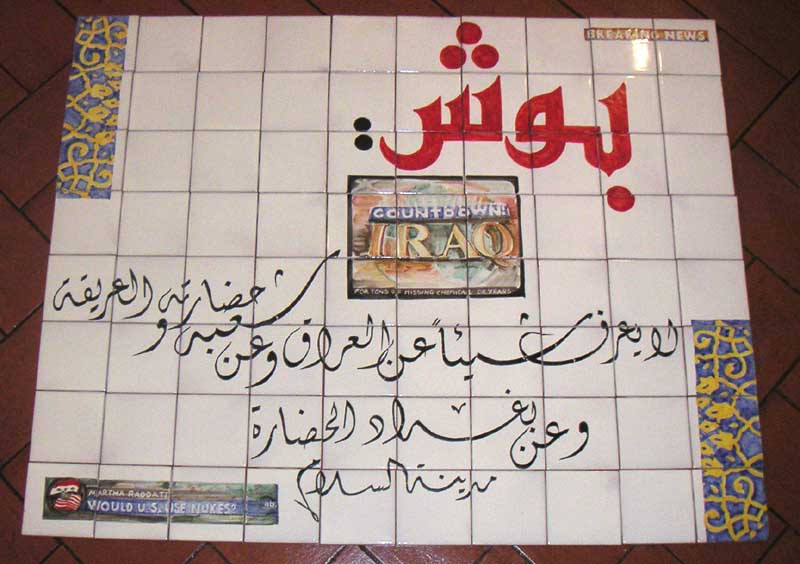 BREAKING NEWS
بوش:
COUNTDOWN:
IRAQ
MISSING CHEMICAL
لا يعرف شيئاً عن العراق وعن شعبه و حضارته العريقة
وعن بغداد الحضارة
مدينة السلام
MARTHA RADDATZ
WOULD U.S. USE NUKES?